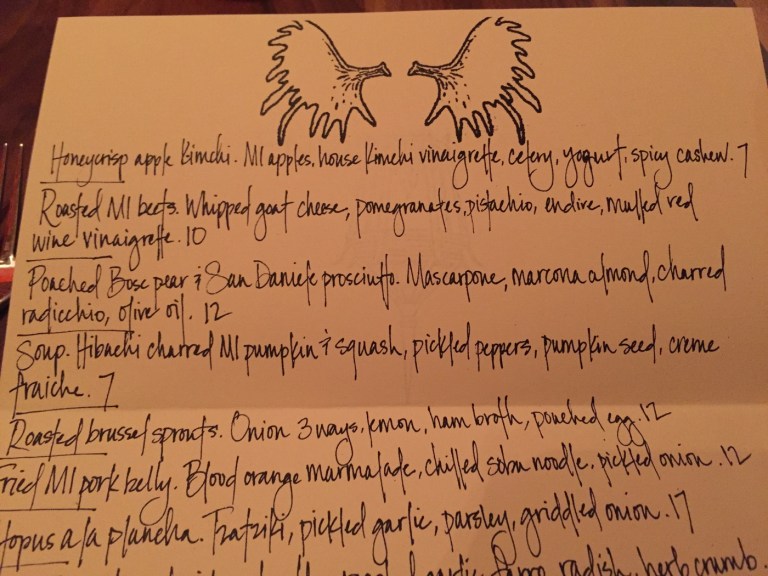 Honeycrisp apple Kimchi. MI apples, house Kimchi vinaigrette, celery, yogurt, spicy cashew. 7
Roasted MI beets. Whipped goat cheese, pomegranates, pistachio, endive, mulled red
wine vinaigrette. 10
Poached Bosc pear & San Daniele prosciutto. Mascarpone, marcona almond, charred
radicchio, olive oil. 12
Soup. Hibachi charred MI pumpkin & squash, pickled peppers, pumpkin seed, creme
fraiche. 7
Roasted brussel sprouts. Onion 3 ways, lemon, ham broth, poached egg. 12
Fried MI pork belly. Blood orange marmalade, chilled soba noodle, pickled onion. 12
topus a la plancha. Tzatziki, pickled garlic, parsley, griddled onion. 17
garlic, radish, herb crumb.